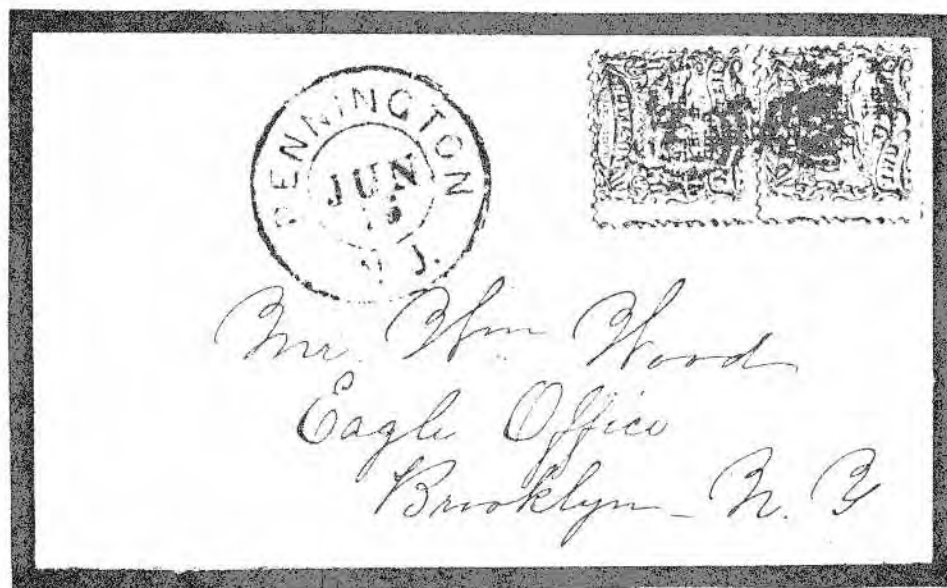 PENNINGTON
JUN
N.J.
Mr. Wm Wood
Eagle Office
Brooklyn - N. Y